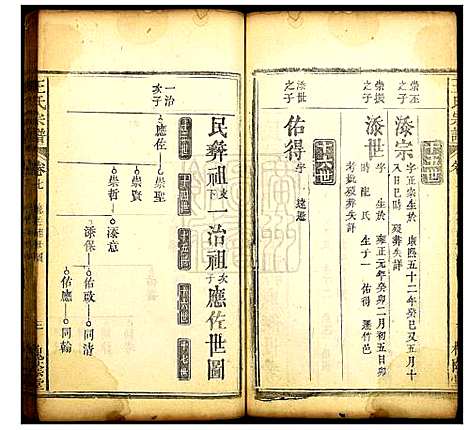 崇至之子
添宗 字正宗生於康熙五十二年癸巳又五月十
八日巳時 歿葬失詳
崇振之子
添世 字 生於雍正元年癸卯二月初五日卯
時 配 龍氏 生子一 佑得 遷竹邑
考妣歿葬失詳
十六世
添世之子
佑得 字 遠遷
王氏宗譜
民彝祖支下一治祖次子應佐世圖
十三世 十四世 十五世 十六世 十七世
一治次子
應佐
崇聖
崇賢
崇哲
添意
添保
佑啟
同清
佑應
同翰
王氏宗譜
卷七
三
槐蔭堂